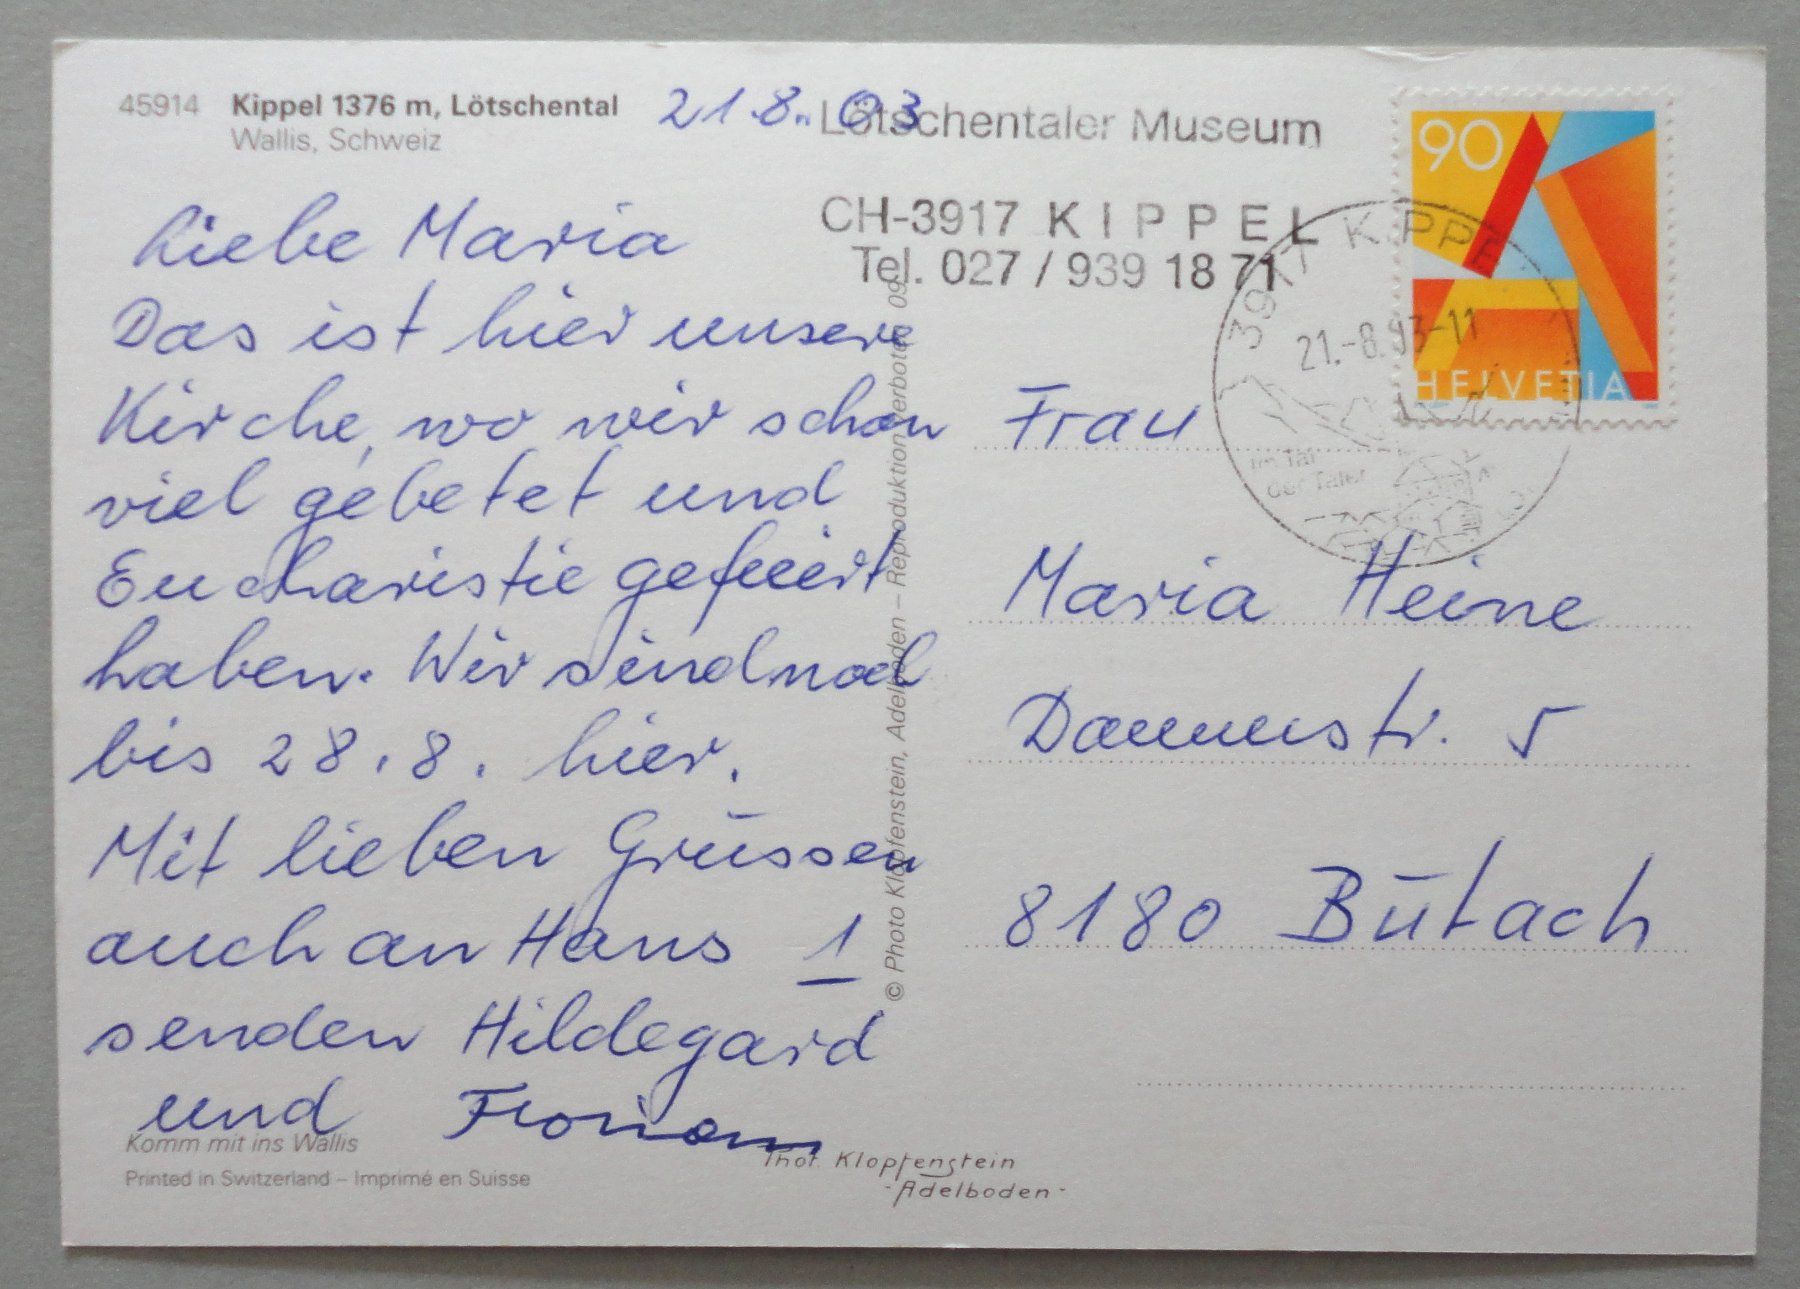 45914 Kippel 1376 m, Lötschental
Wallis, Schweiz
21.8.03
Lötschentaler Museum
CH-3917 KIPPEL
Tel. 027 / 939 18 71
90
HELVETIA
3917 KIPPEL
21.-8.93-11
im Tal
der Täler
Liebe Maria
Das ist hier unsere
Kirche, wo wir schon
viel gebetet und
Eucharistie gefeiert
haben. Wir sind noch
bis 28.8. hier.
Mit lieben Grüssen
auch an Hans 1
senden Hildegard
und Florian
Frau
Maria Heine
Dammstr. 5
8180 Bülach
© Photo Klopfenstein, Adelboden – Reproduktion verboten 09
Komm mit ins Wallis
Printed in Switzerland – Imprimé en Suisse
Phot. Klopfenstein
-Adelboden-